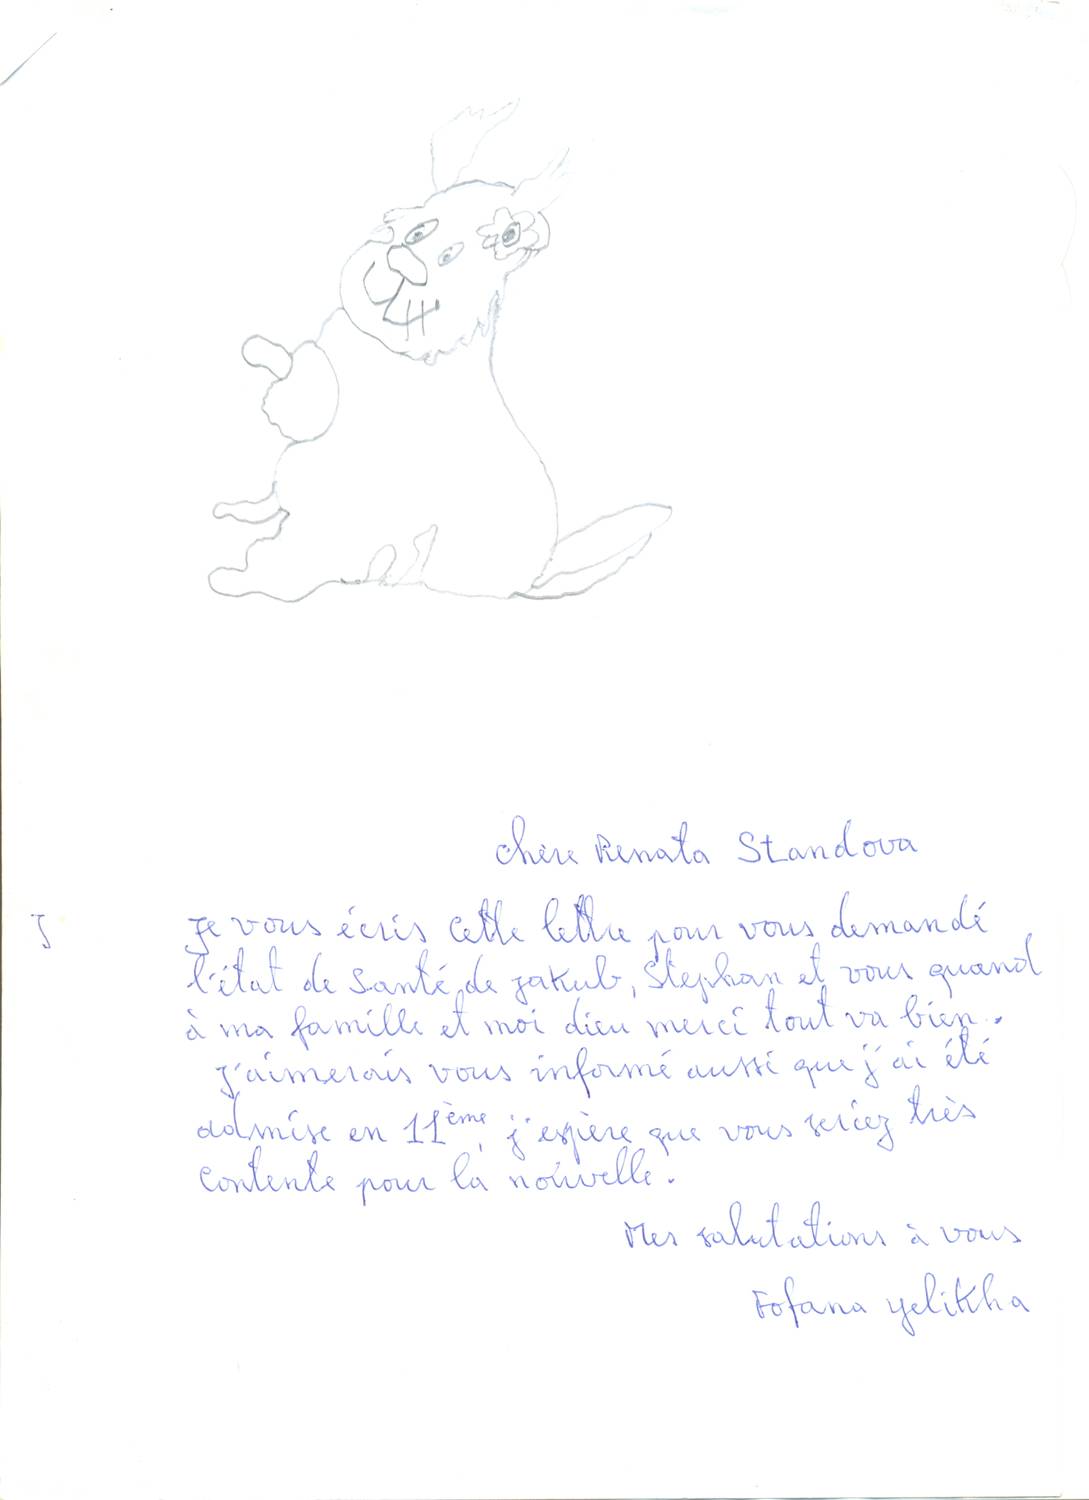 chère Renata Standova
J
Je vous écris cette lettre pour vous demandé
l'état de Santé de Jakub, Stephan et vous quand
à ma famille et moi dieu merci tout va bien.
J'aimerais vous informé aussi que j'ai été
admise en 11ème, j'espère que vous seriez très
contente pour la nouvelle.
Mes salutations à vous
Fofana yelikha